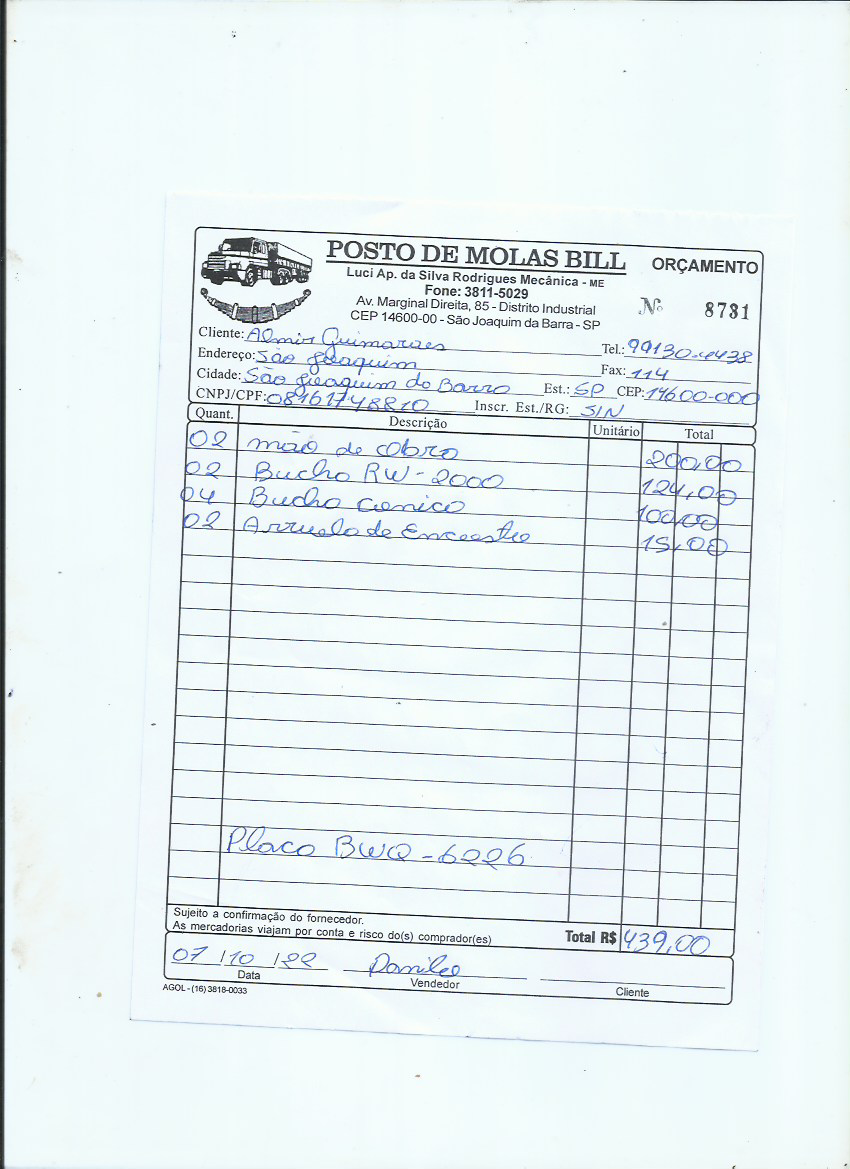 POSTO DE MOLAS BILL
ORÇAMENTO
Luci Ap. da Silva Rodrigues Mecânica - ME
Fone: 3811-5029
Av. Marginal Direita, 85 - Distrito Industrial
CEP 14600-00 - São Joaquim da Barra - SP
Nº 8731
Cliente: Almir Guimaraes Tel.: 99130-4438
Endereço: São Joaquim Fax: 114
Cidade: São Joaquim da Barra Est.: SP CEP: 14600-000
CNPJ/CPF: 08161748810 Inscr. Est./RG: SIN
Quant. Descrição Unitário Total
02 mão de obra 200,00
02 Bucha RW-2000 124,00
04 Bucha conico 100,00
02 Arruela de Encosto 15,00
Placa BWQ-6226
Sujeito a confirmação do fornecedor.
As mercadorias viajam por conta e risco do(s) comprador(es)
Total R$ 439,00
07/10/22 Danilo
Data Vendedor Cliente
AGOL - (16) 3818-0033